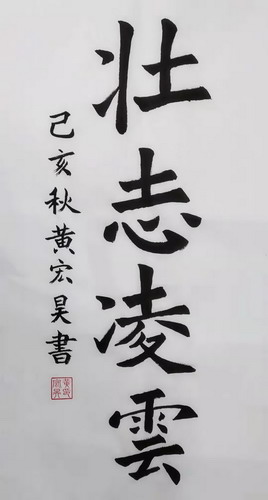 壮志凌雲
己亥秋黄宏昊書